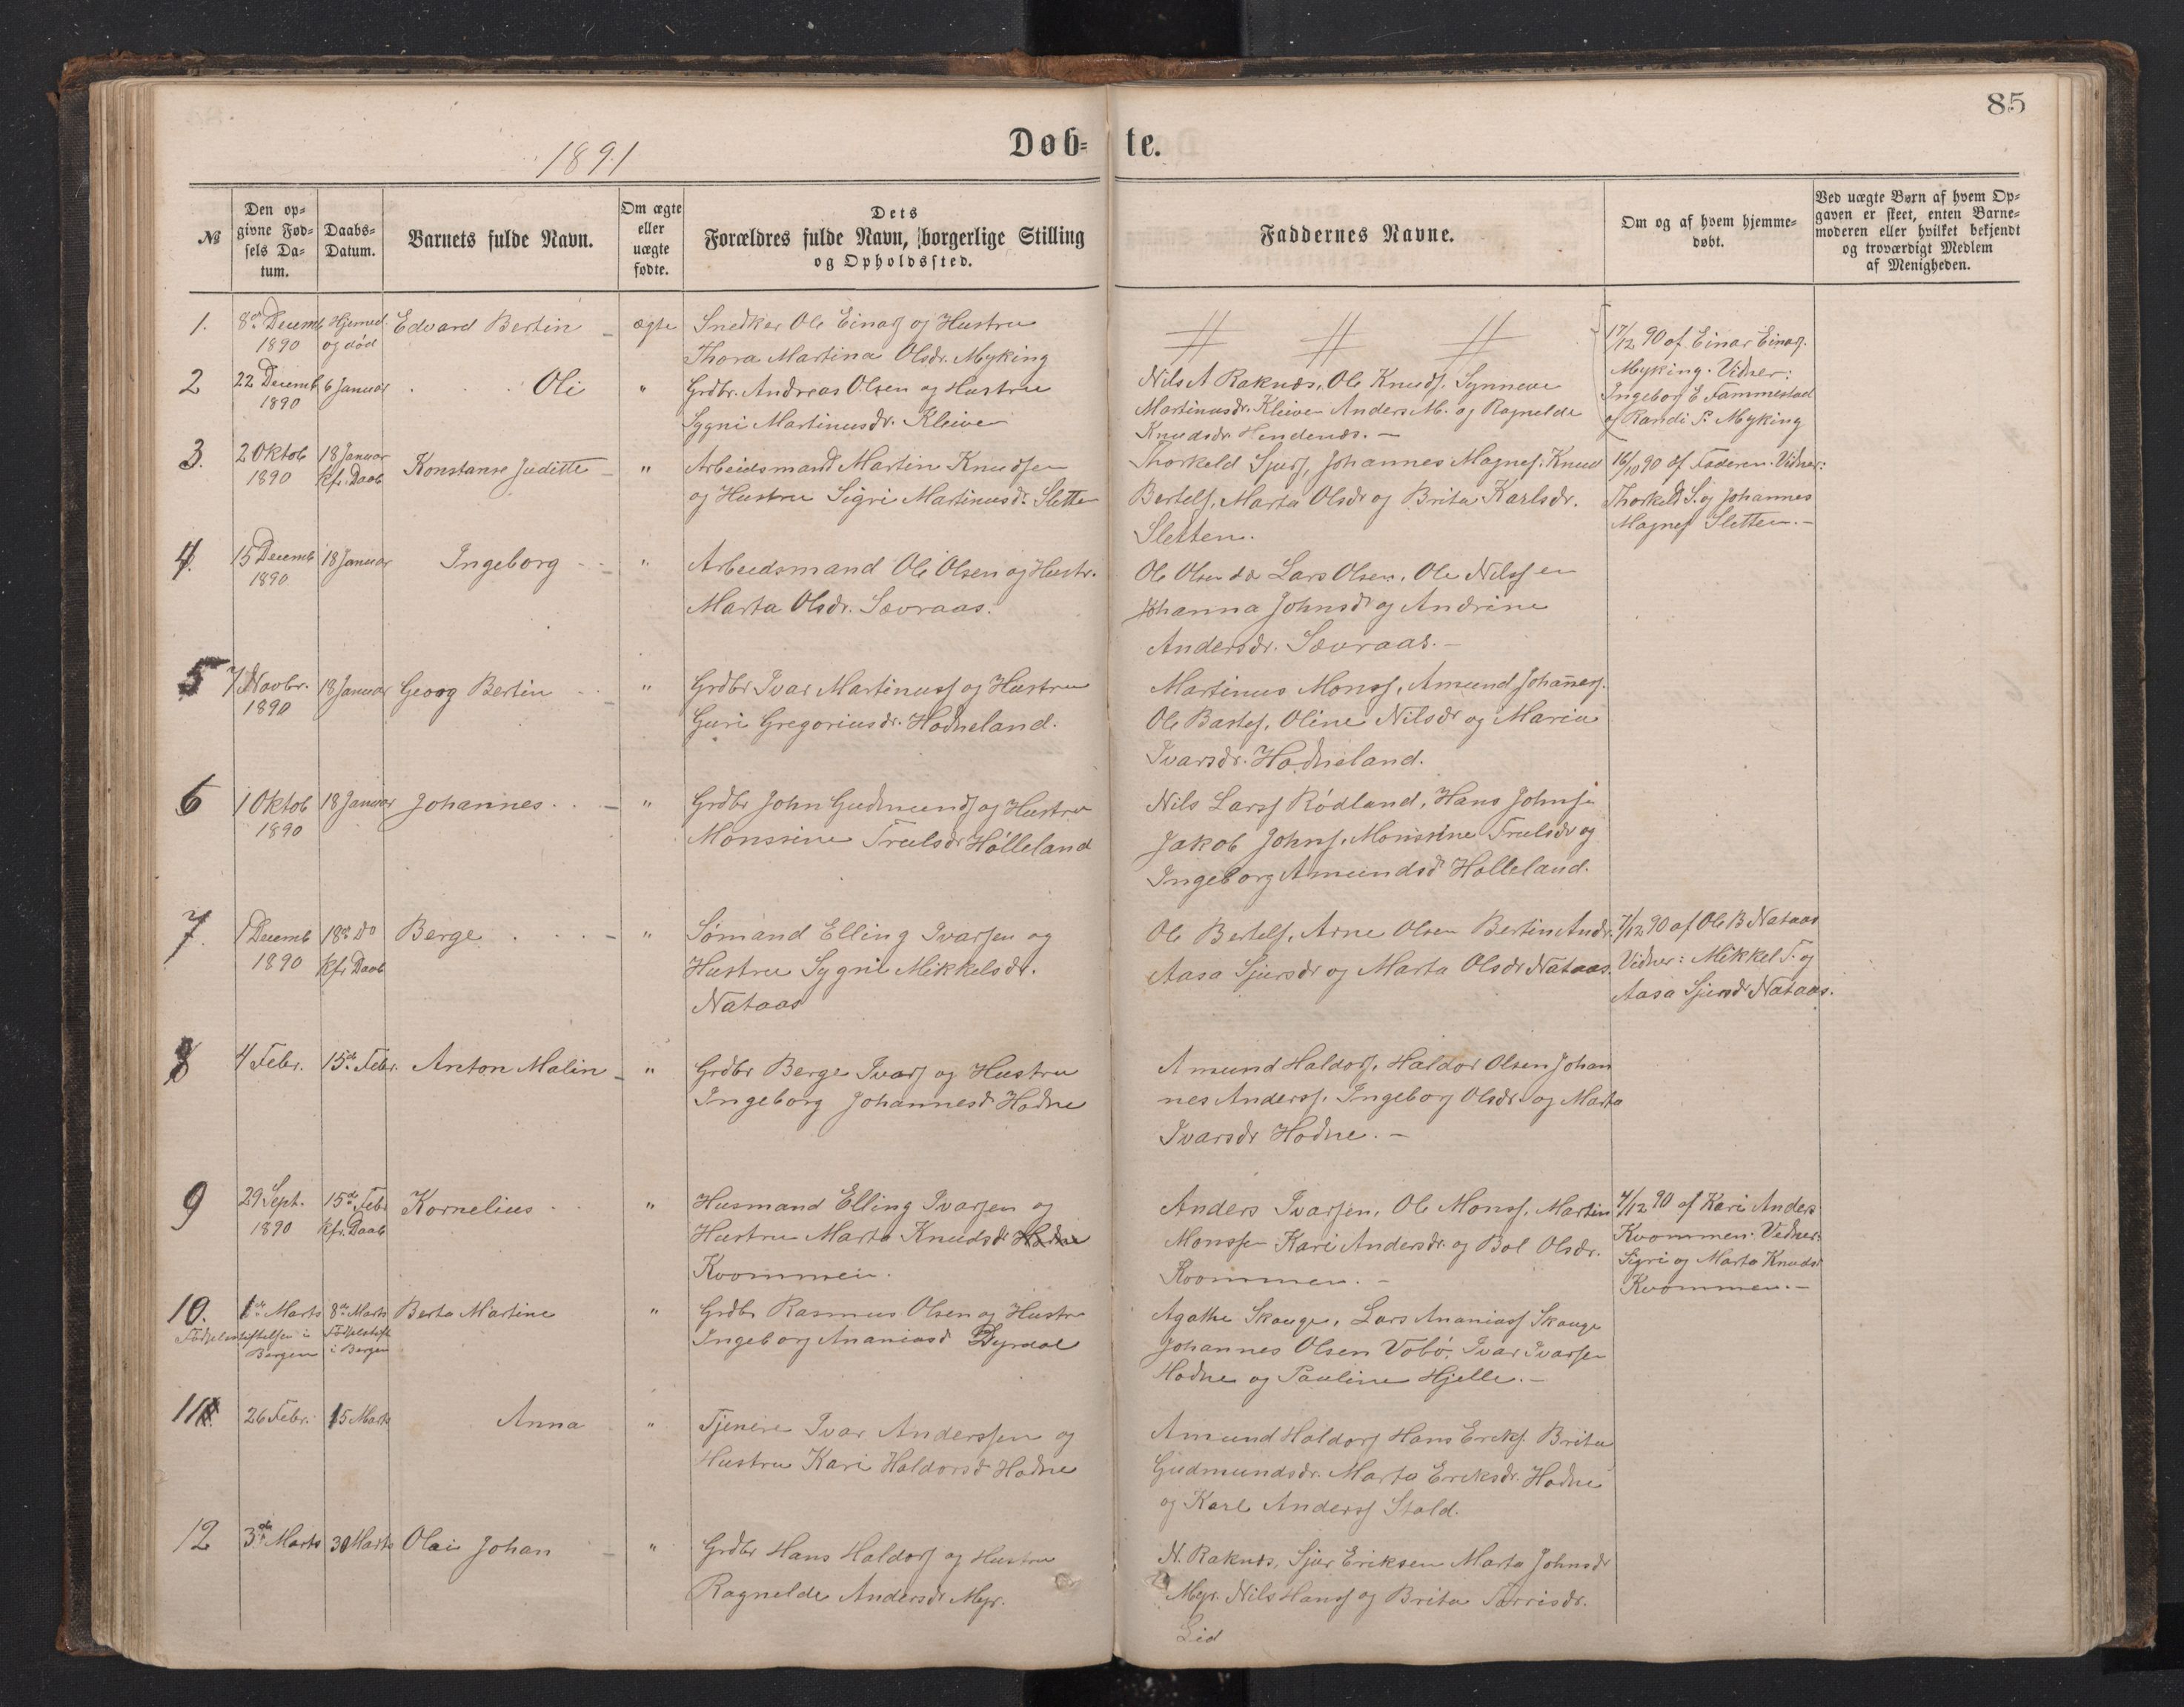 85
Døb- te.
1891
№
Den op-
givne Fød-
sels Da-
tum.
Daabs-
Datum.
Barnets fulde Navn.
Om ægte
eller
uægte
fødte.
Dets
Forældres fulde Navn, borgerlige Stilling
og Opholdssted.
Faddernes Navne.
Om og af hvem hjemme-
døbt.
Ved uægte Børn af hvem Op-
gaven er skeet, enten Barne-
moderen eller hvilket bekjendt
og troværdigt Medlem
af Menigheden.
1. 8de Decemb Hjemmed. Edvard Bertin - ægte Snedker Ole Einars og Hustru
1890 og død Thora Martina Olsdr. Myking
17/12 90 af Einar Einars.
Myking. Vidner:
Ingeborg E Fammestad
og Randi P. Myking
2 22 Decemb 6 Januar Oli " Grdbr. Andreas Olsen og Hustru
1890 Sygni Martinusdr. Kleive
Nils A Raknes, Ole Knuds, Synneve
Martinusdr. Kleive Anders M. og Ragnelde
Knudsdr. Hendenes. -
3. 2 Oktob 18 Januar Konstanse Juditte - " Arbeidsmand Martin Knudsen
1890 kfr. Daab og Hustru Sigri Martinusdr. Slette
Thorkeld Sjurs, Johannes Magnes. Knud
Bertels, Marta Olsdr og Brita Karlsdr.
Sletten.
16/10 90 af Faderen. Vidner:
Thorkeld S. og Johannes
Magnes Sletten. -
4. 15 Decemb 18 Januar Ingeborg - " Arbeidsmand Ole Olsen og Hustr.
1890 Marta Olsdr. Sævraas.
Ole Olsen Lars Olsen, Ole Nilssen
Johanna Johnsdr og Andrine
Andersdr. Sævraas. -
5 7 Novbr. 18 Januar Georg Bertin - " Grdbr Ivar Martinuss og Hustru
1890 Guri Gregoriusdr. Hodneland.
Martinus Monss, Amund Johañes.
Ole Bartes, Oline Nilsdr og Maria
Ivarsdr. Hodneland.
6 1 Oktob 18 Januar Johannes - " Grdbr John Gudmunds og Hustru
1890 Monsine Trulsdr Hølleland
Nils Larss Rødland, Hans Johnsen
Jakob Johns, Monsine Trulsdr og
Ingeborg Amundsd Hølleland.
7. 1 Decemb 18de Do Berge - " Sømand Elling Ivarsen og
1890 kfr. Daab Hustru Sygni Mikkelsdr.
Nataas
Ole Bertels, Arne Olsen Bertin Andr.
Aasa Sjursdr og Marta Olsdr Nataas.
7/12 90 af Ole B Nataas
Vidner: Mikkel T. og
Aasa Sjursdr Nataas.
8 4 Febr. 15de Febr. Anton Malin - " Grdbr Berge Ivars og Hustru
Ingeborg Johannesdr Hodne
Amund Haldors, Haldor Olsen Johan
nes Anderss, Ingeborg Olsdr. og Marta
Ivarsdr Hodne. -
9 29 Sept. 15de Febr Kornelius " Husmand Elling Ivarsen og
1890 kfr. Daab Hustru Marta Knudsdr Hodne
Kvommen.
Anders Ivarsen, Ole Monss, Martin
Monssen Kari Andersdr. og Bol Olsdr.
Kvommen. -
4/12 90 af Kari Anders
Kvommen. Vidner:
Sigri og Marta Knudsdr
Kvommen. -
10. 1ste Marts 8de Marts Berta Martine " Grdbr Rasmus Olsen og Hustru
Fødselsstiftelsen i Bergen Fødselsstift i Bergen Ingeborg Ananiasd Dyrdal
Agathe Skauge, Lars Ananiass Skauge
Johannes Olsen Vobø, Ivar Ivarsen
Hodne og Pauline Hjelle. -
11 26 Febr. 15 Marts Anna " Tjener Ivar Anderssen og
Hustru Kari Haldorsd Hodne
Amund Haldors Hans Ereks. Brita
Gudmundsdr. Marta Ereksdr. Hodne
og Karl Anderss Stald.
12 3de Marts 30 Marts Olai Johan - " Grdbr Hans Haldors og Hustru
Ragnelde Andersdr Myr.
N. Raknes, Sjur Eriksen Marta Johnsdr
Myr. Nils Hanss og Brita Tarrisdr.
Eid